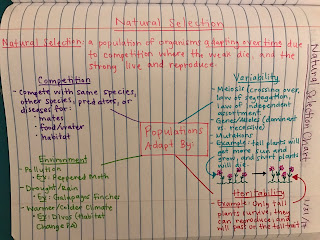 Natural Selection
Natural Selection: a population of organisms adapting over time due
to competition where the weak die, and the
strong live and reproduce.
Competition
- Compete with same species,
other species, predators, or
diseases for:
- mates
- Food/water
- habitat
Populations
Adapt By:
Environment
- Pollution
- Ex: Peppered Moth
- Drought/Rain
- Ex: Galapagos Finches
- Warmer/Colder Climate
- Ex: Dinos (Habitat
Change)
Variability
- Meiosis (crossing over,
law of segregation,
law of independent
assortment.
- Genes/Alleles (dominant
vs. recessive)
- Mutations
- Example: tall plants will
get more sun and
grow, and short plants
will die.
Heritability
- Example: Only tall
plants survive, they
can reproduce, and
will pass on the tall trait
Natural Selection Chart